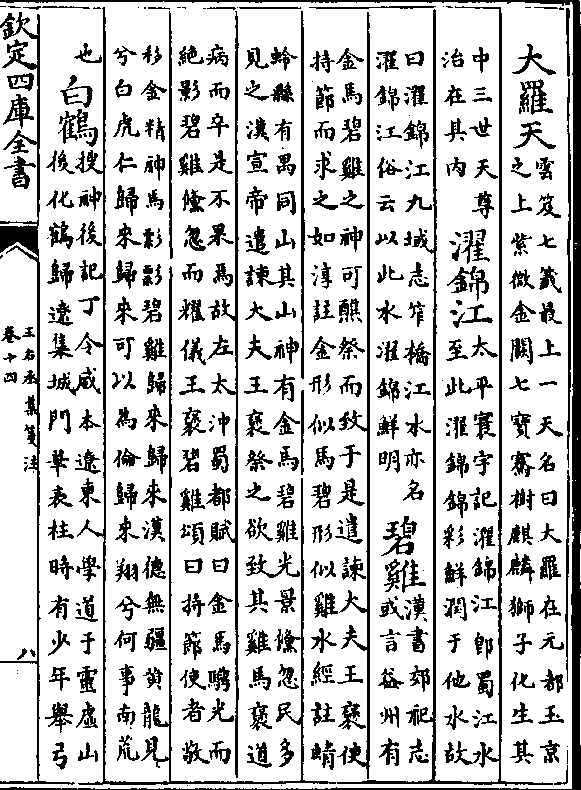 大羅天雲笈七籤最上一天名曰大羅在元都玉京
之上紫微金闕七寶騫樹麒麟獅子化生其
中三世天尊
治在其内
濯錦江太平寰宇記濯錦江即蜀江水
至此濯錦錦彩鮮潤于他水故
曰濯錦江九域志笮橋江水亦名
濯錦江俗云以此水濯錦鮮明
碧雞漢書郊祀志
或言益州有
金馬碧雞之神可醮祭而致于是遣諫大夫王襃使
持節而求之如淳註金形似馬碧形似雞水經註蜻
蛉縣有禺同山其山神有金馬碧雞光景儵忽民多
見之漢宣帝遣諫大夫王襃祭之欲致其雞馬襃道
病而卒是不果焉故左太沖蜀都賦曰金馬騁光而
絶影碧雞儵忽而耀儀王襃碧雞頌曰持節使者敬
移金精神馬彯彯碧雞歸來歸來漢德無疆黄龍見
兮白虎仁歸來歸來可以為倫歸來翔兮何事南荒
也
白鶴搜神後記丁令威本遼東人學道于靈虛山
後化鶴歸遼集城門華表柱時有少年舉弓
欽定四庫全書
王右丞集箋注
卷十四
八